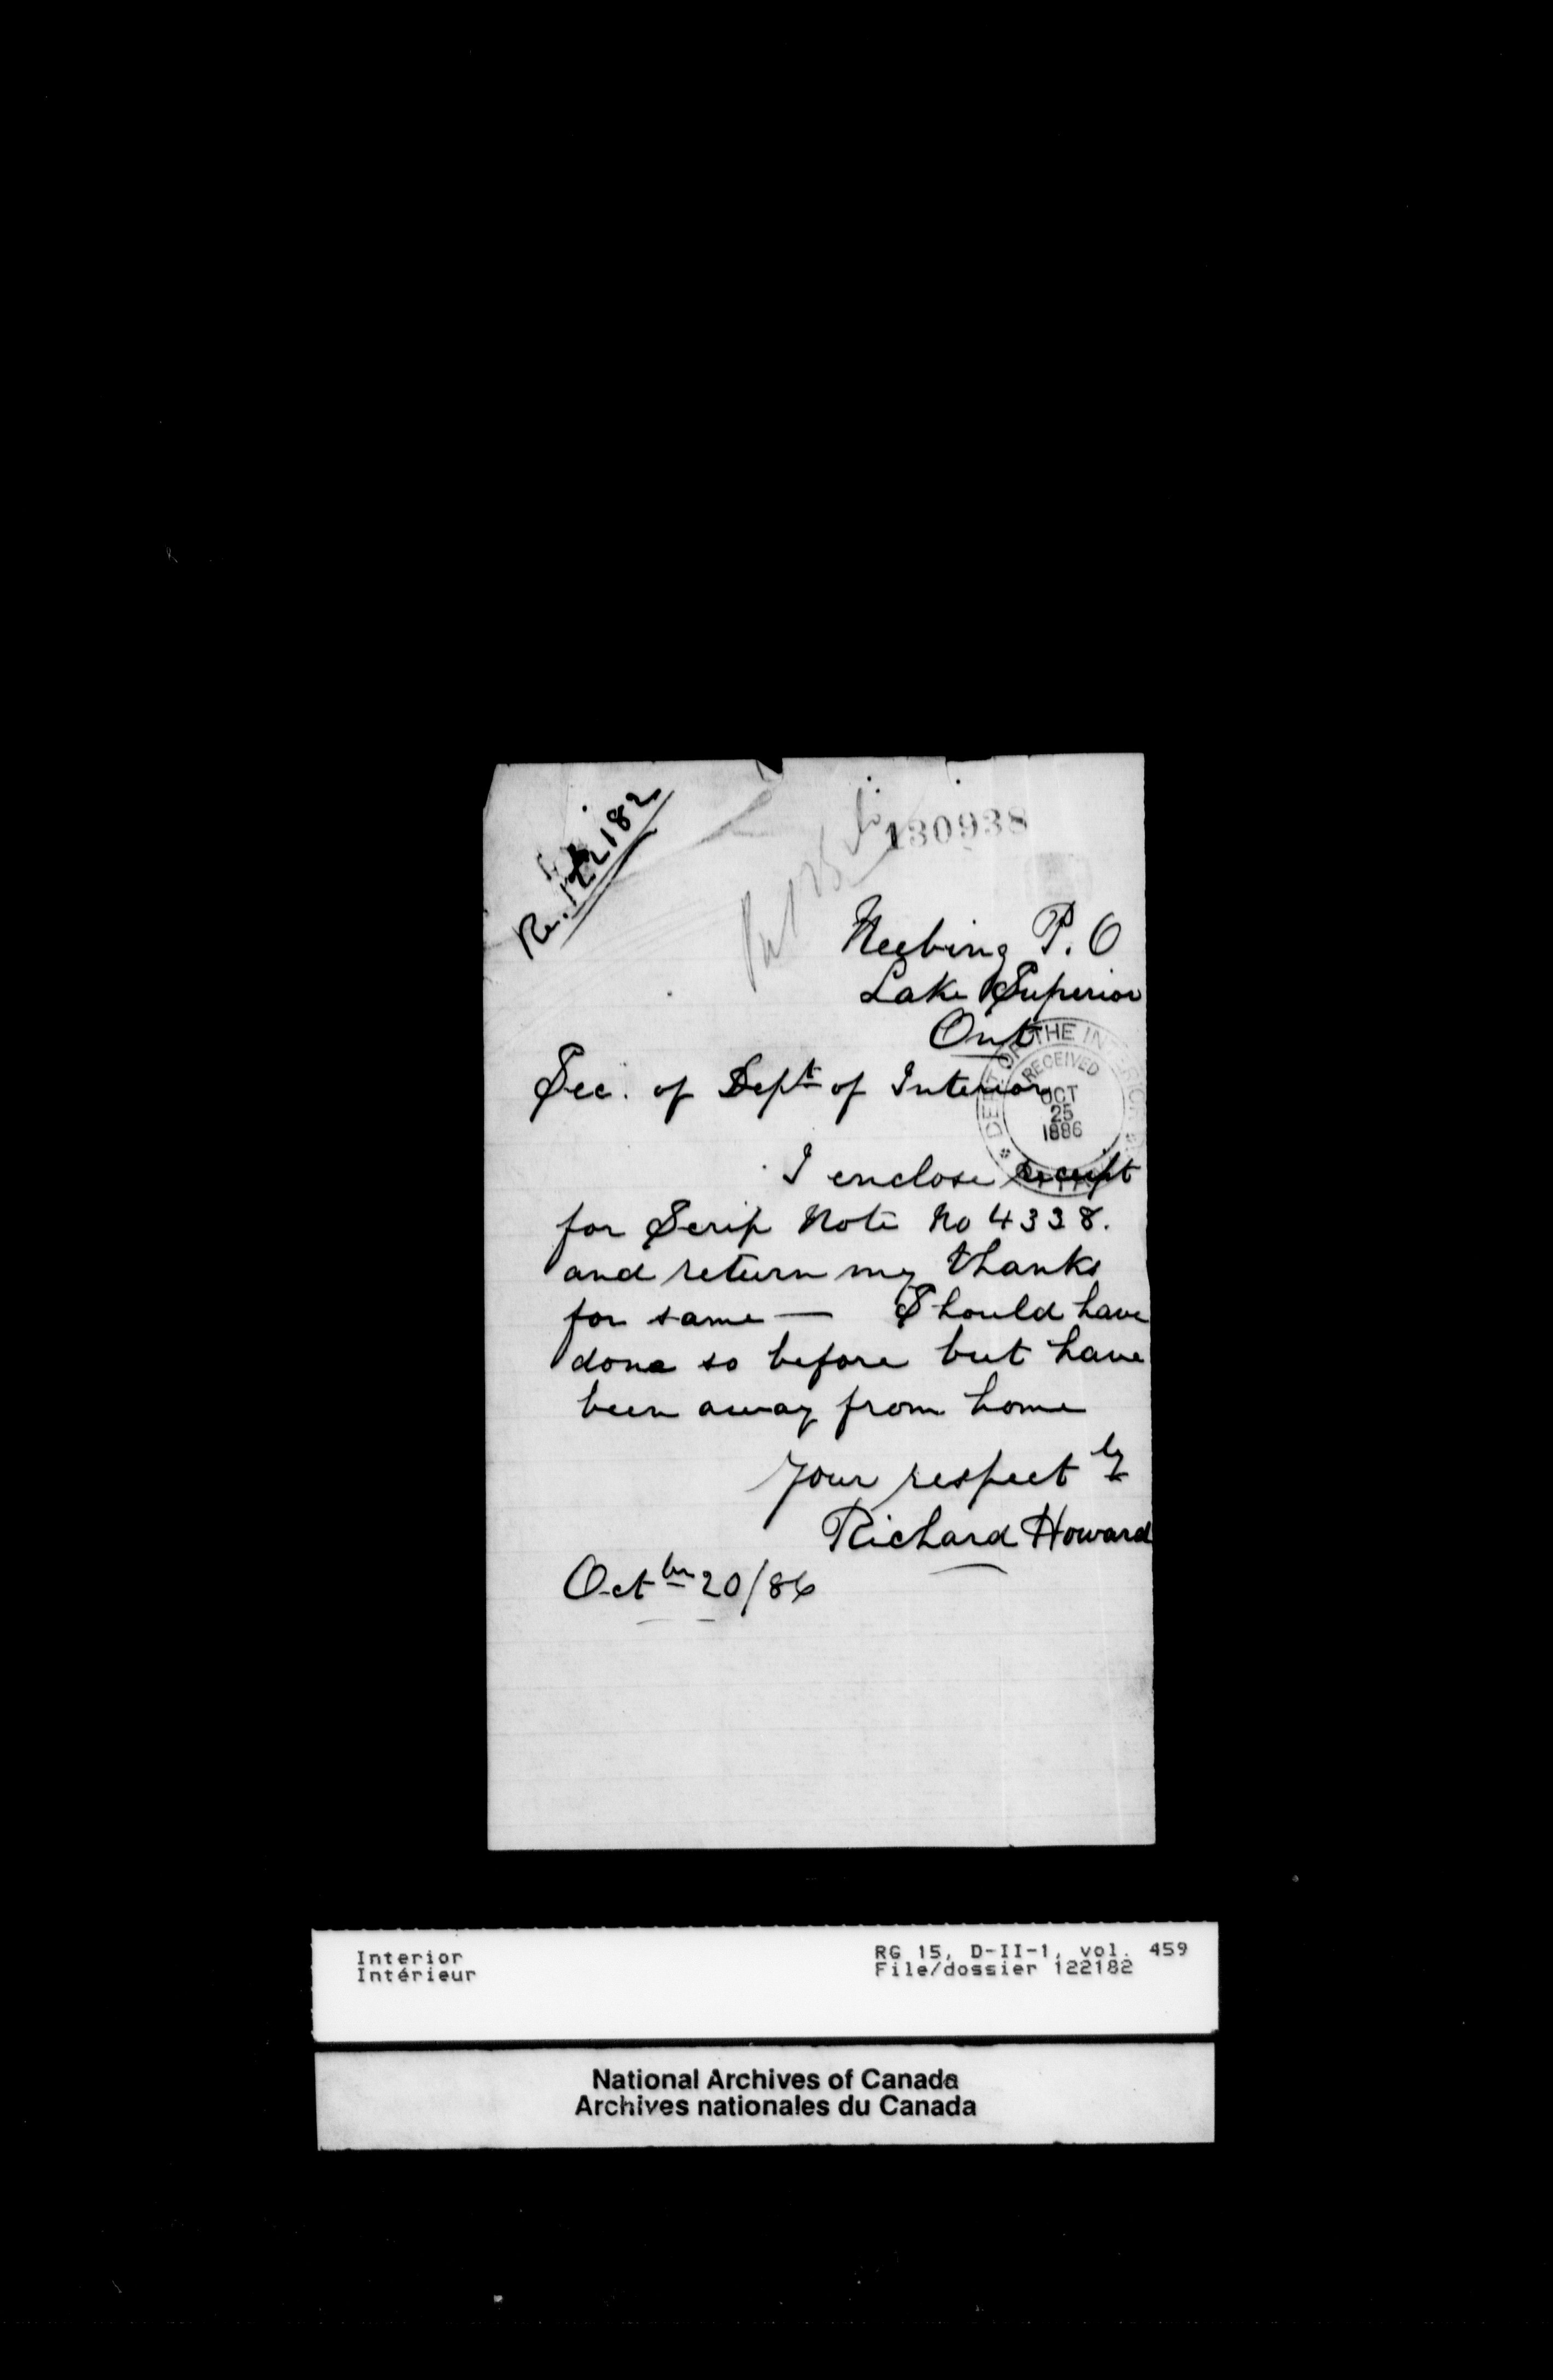 Re. 122182
130938
Neebing P. O
Lake Superior
Ont
DEPT OF THE INTERIOR
RECEIVED
OCT
25
1886
Sec. of Dept of Interior
I enclose receipt
for Scrip Note No 4338.
and return my thanks
for same — Should have
done so before but have
been away from home
Your respectly
Richard Howard
Octber 20/86
Interior
Intérieur
RG 15, D-II-1, vol. 459
File/dossier 122182
National Archives of Canada
Archives nationales du Canada